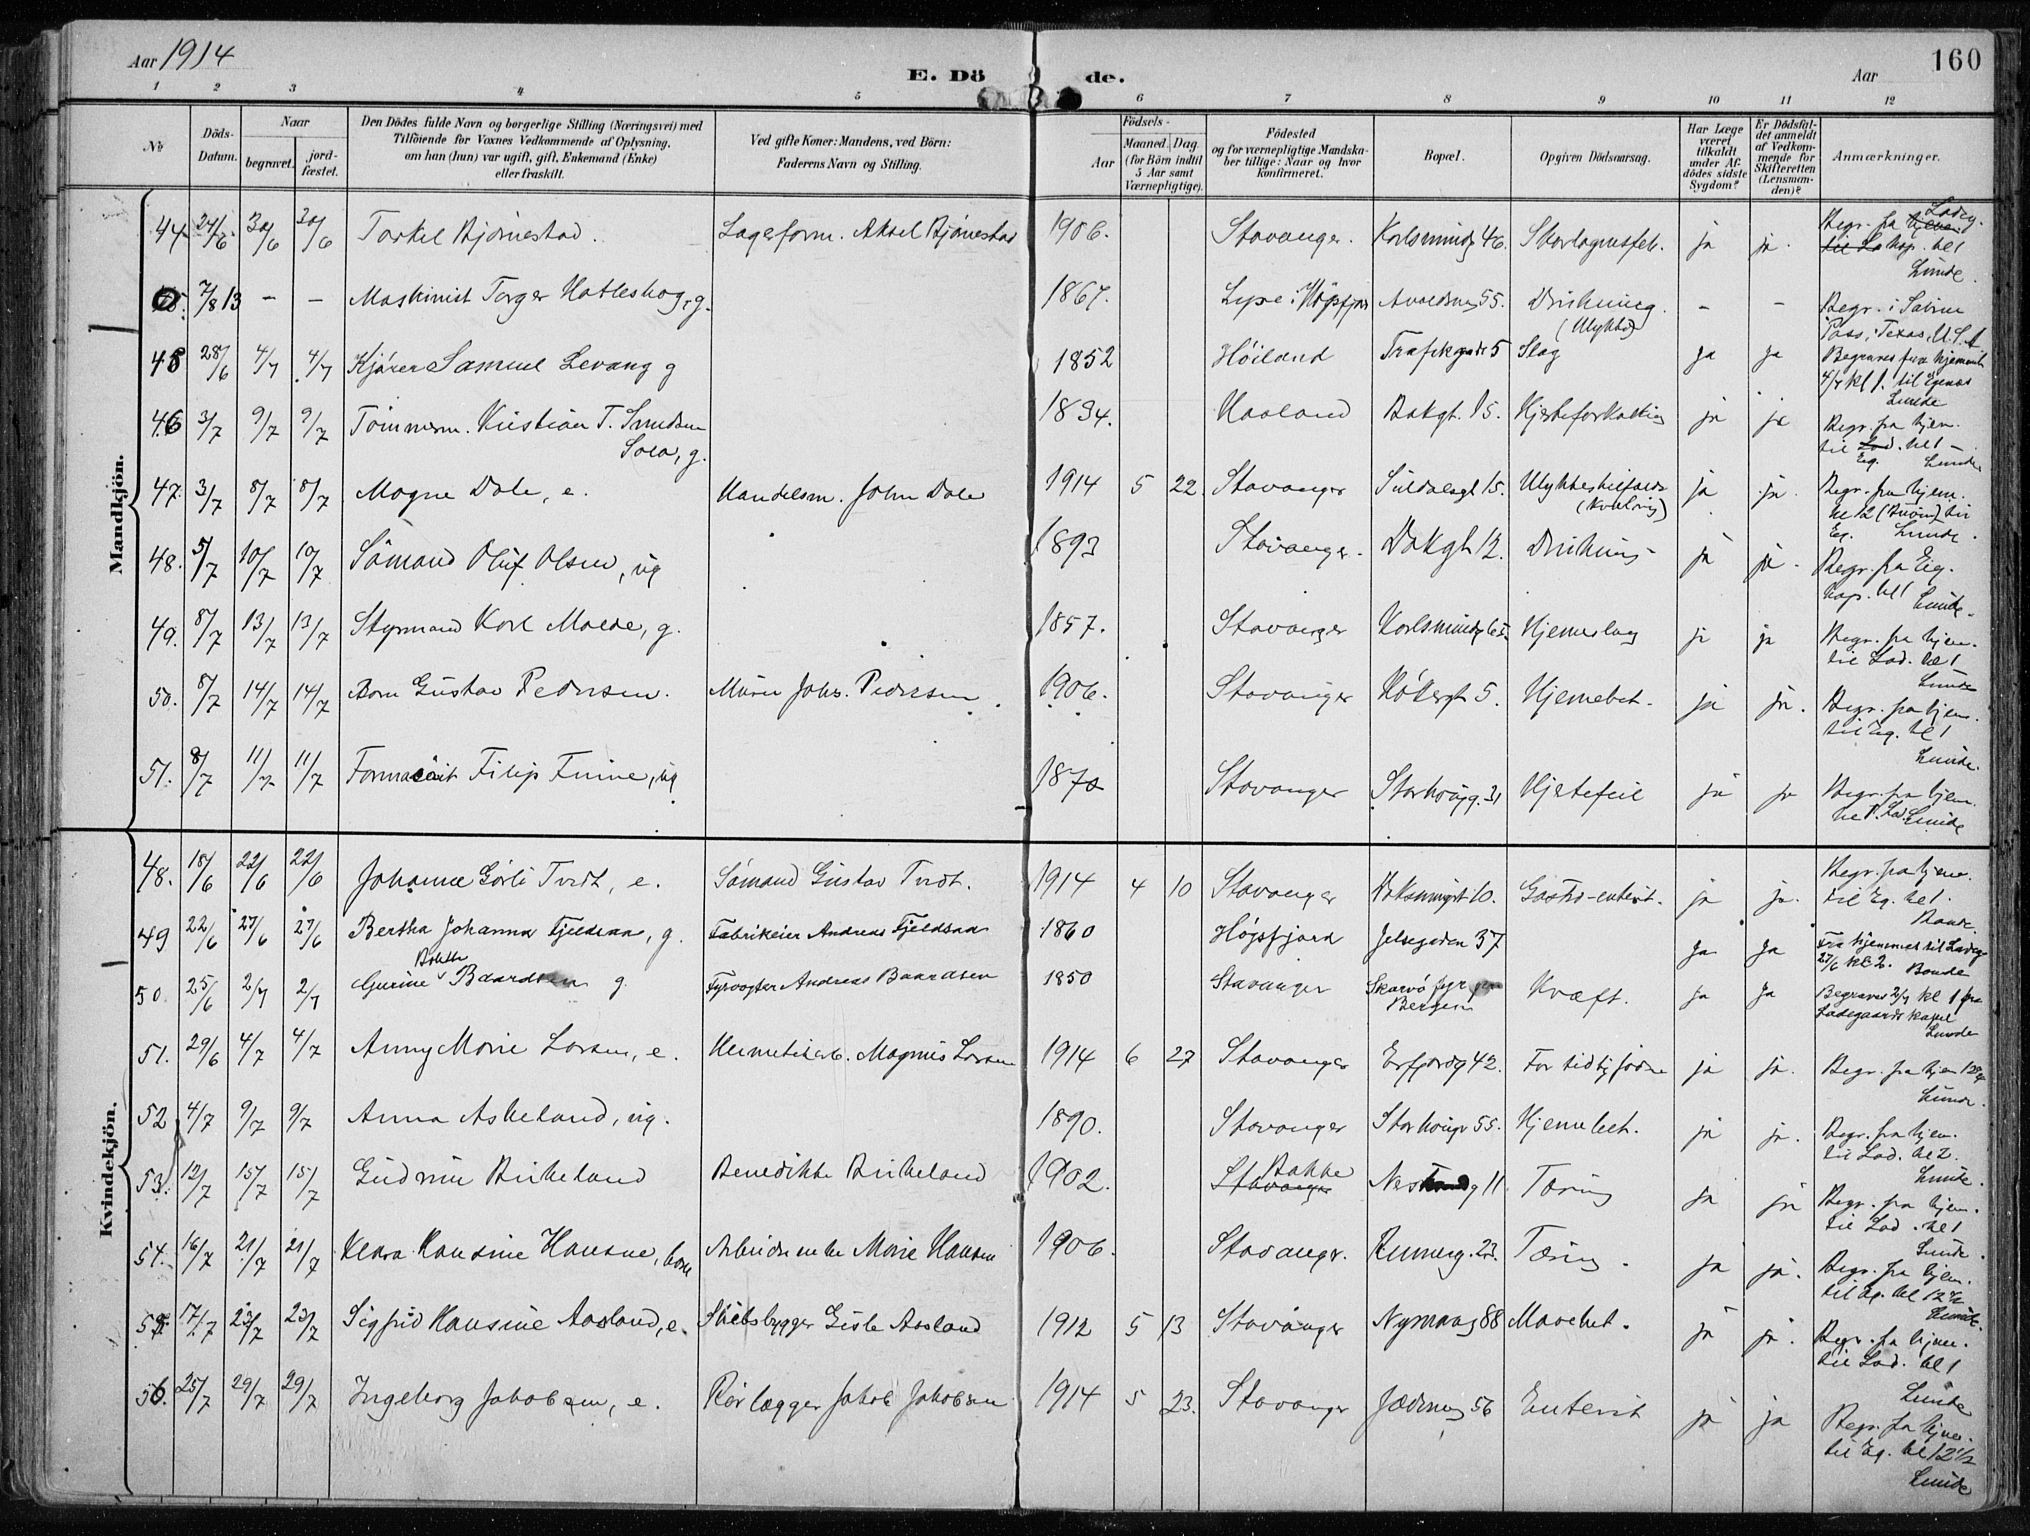 Aar 1914
E. Dö de.
Aar
160
1 2 3 4 5 6 7 8 9 10 11 12
No
Döds-Datum.
Naar
begravet.
jord-fæstet.
Den Dödes fulde Navn og borgerlige Stilling (Næringsvei) med
Tilföiende for Voxnes Vedkommende af Oplysning,
om han (hun) var ugift, gift, Enkemand (Enke)
eller fraskilt.
Ved gifte Koner: Mandens, ved Börn:
Faderens Navn og Stilling.
Födsels-
Aar
Maaned. Dag.
(for Börn indtil
5 Aar samt
Værnepligtige).
Födested
og for værnepligtige Mandska-
ber tillige: Naar og hvor
konfirmeret.
Bopæl.
Opgiven Dödsaarsag.
Har Læge
været
tilkaldt
under Af-
dödes sidste
Sygdom?
Er Dödsfal-
det anmeldt
af Vedkom-
mende for
Skifteretten
(Lensman-
den)?
Anmærkninger.
Mandkjön.
44. 24/6. 30/6 30/6 Torkel Bjørnestad. Lagerform. Aksel Bjørnestad 1906. Stavanger. Karlsmindg 46. Skarlagensfeb. ja ja. Begr. fra Ladeg. kap. kl 1 Lunde.
7/8 13 - - Maskinist Torger Hatleskog, g. 1867. Avaldsnesg 55. Drukning. (Ulykke) - - Begr. i Sabine Pass, Texas, U.S.A
45 28/6 4/7 4/7 Kjører Samuel Levang g 1852 Høiland Trafikgade 5 Slag ja ja Begraves fra hjemmet 4/7 kl 1. til Egenæs Lunde
46 3/7 9/7 9/7 Tömmerm. Kristian T. Smedsen Sola, g. 1834. Haaland Bakgt. 15. Hjerteforkalkning ja ja Begr. fra hjem. til Lad. kl 1 - Eig. Lunde
47. 3/7 8/7 8/7 Magne Dale, e. Handelsm. John Dale 1914 5 22. Stavanger Suldalsgt 15. Ulykkestilfælde (Kvælning) ja ja. Begr. fra hjem. kl 12 til Eg. Lunde.
48. 5/7 10/7 10/7 Sömand Oluf Olsen, ug 1893 Stavanger. Bakgt 12. Drukning - ja ja. Begr. fra Eig. kap. kl 1 Lunde.
49. 8/7 13/7 13/7 Styrmand Karl Maele, g. 1857. Stavanger Karlsmindeg 65. Hjerneslag ja ja Begr. fra hjem. til Lad. kl 1 Lunde
50. 8/7 14/7 14/7 Barn Gustav Pedersen. Murer Johs. Pedersen. 1906. Stavanger Kökergt 5. Hjernebet. ja ja. Begr. fra hjem. til Eg. kl 1 Lunde.
51. 8/7 11/7 11/7 Farmaceüt Filip Finne, ug 1870 Stavanger Storhougg. 31 Hjertefeil ja ja Begr. fra hjem. kl 1. Lad. Lunde
Kvindekjön.
48. 18/6 22/6 22/6 Johanne Görli Tvedt, e. Sömand Gustav Tvedt. 1914 4 10 Stavanger 10. Gastro-enterit. ja ja. Begr. fra hjem. til Eg. kl 1. Bonde.
49 22/6 27/6 27/6 Bertha Johanna Fjeldsaa, g. Fabrikeier Andreas Fjeldsaa 1860 Høgsfjord Jelsegaden 37 ja ja Fra hjemmet til Ladeg 27/6 kl 2. Bonde
50. 25/6 2/7 2/7 Gurine Bolette Baardsen g. Fyrvogter Andreas Baardsen 1850 Stavanger Bergen Kræft. ja ja Begraves 2/7 kl 1 fra Ladegaards kapel Lunde
51. 29/6 4/7 4/7 Anny Marie Larsen, e. Hermetikarb. Magnus Larsen 1914 6 27 Stavanger Erfjordg 42. For tidlig født ja ja. Begr. fra hjem Lunde.
52 4/7 9/7 9/7 Anna Askeland, ug. 1890. Stavanger Storhougv 55. Hjernebet. ja ja. Begr. fra hjem. til Lad. kl 2. Lunde.
53. 12/7 15/7 15/7 Gudrun Birkeland Benedikte Birkeland 1902. Stavanger Bakke 11 Tæring ja ja Begr. fra hjem. til Lad. kl 1 Lunde.
54. 16/7 21/7 21/7 Klara Hansine Hansen, barn Arbeiderenke Marie Hansen 1906. Stavanger. 23. Tæring. ja ja. Begr. fra hjem. til Eg. kl 12½ Lunde.
55 17/7 23/7 23/7 Sigfrid Hansine Aasland, e. Skibsbygger Gisle Aasland 1912 5 13 Stavanger Nymansg 88 Mavebet. ja ja. Begr. fra hjem. til Lad. kl 1 Lunde
56. 25/7 29/7 29/7 Ingeborg Jakobsen, e. Rörlægger Jakob Jakobsen 1914 5 23. Stavanger Jæderveg 56 Enterit ja ja Begr. fra hjem. til Eg. kl 12½ Lunde